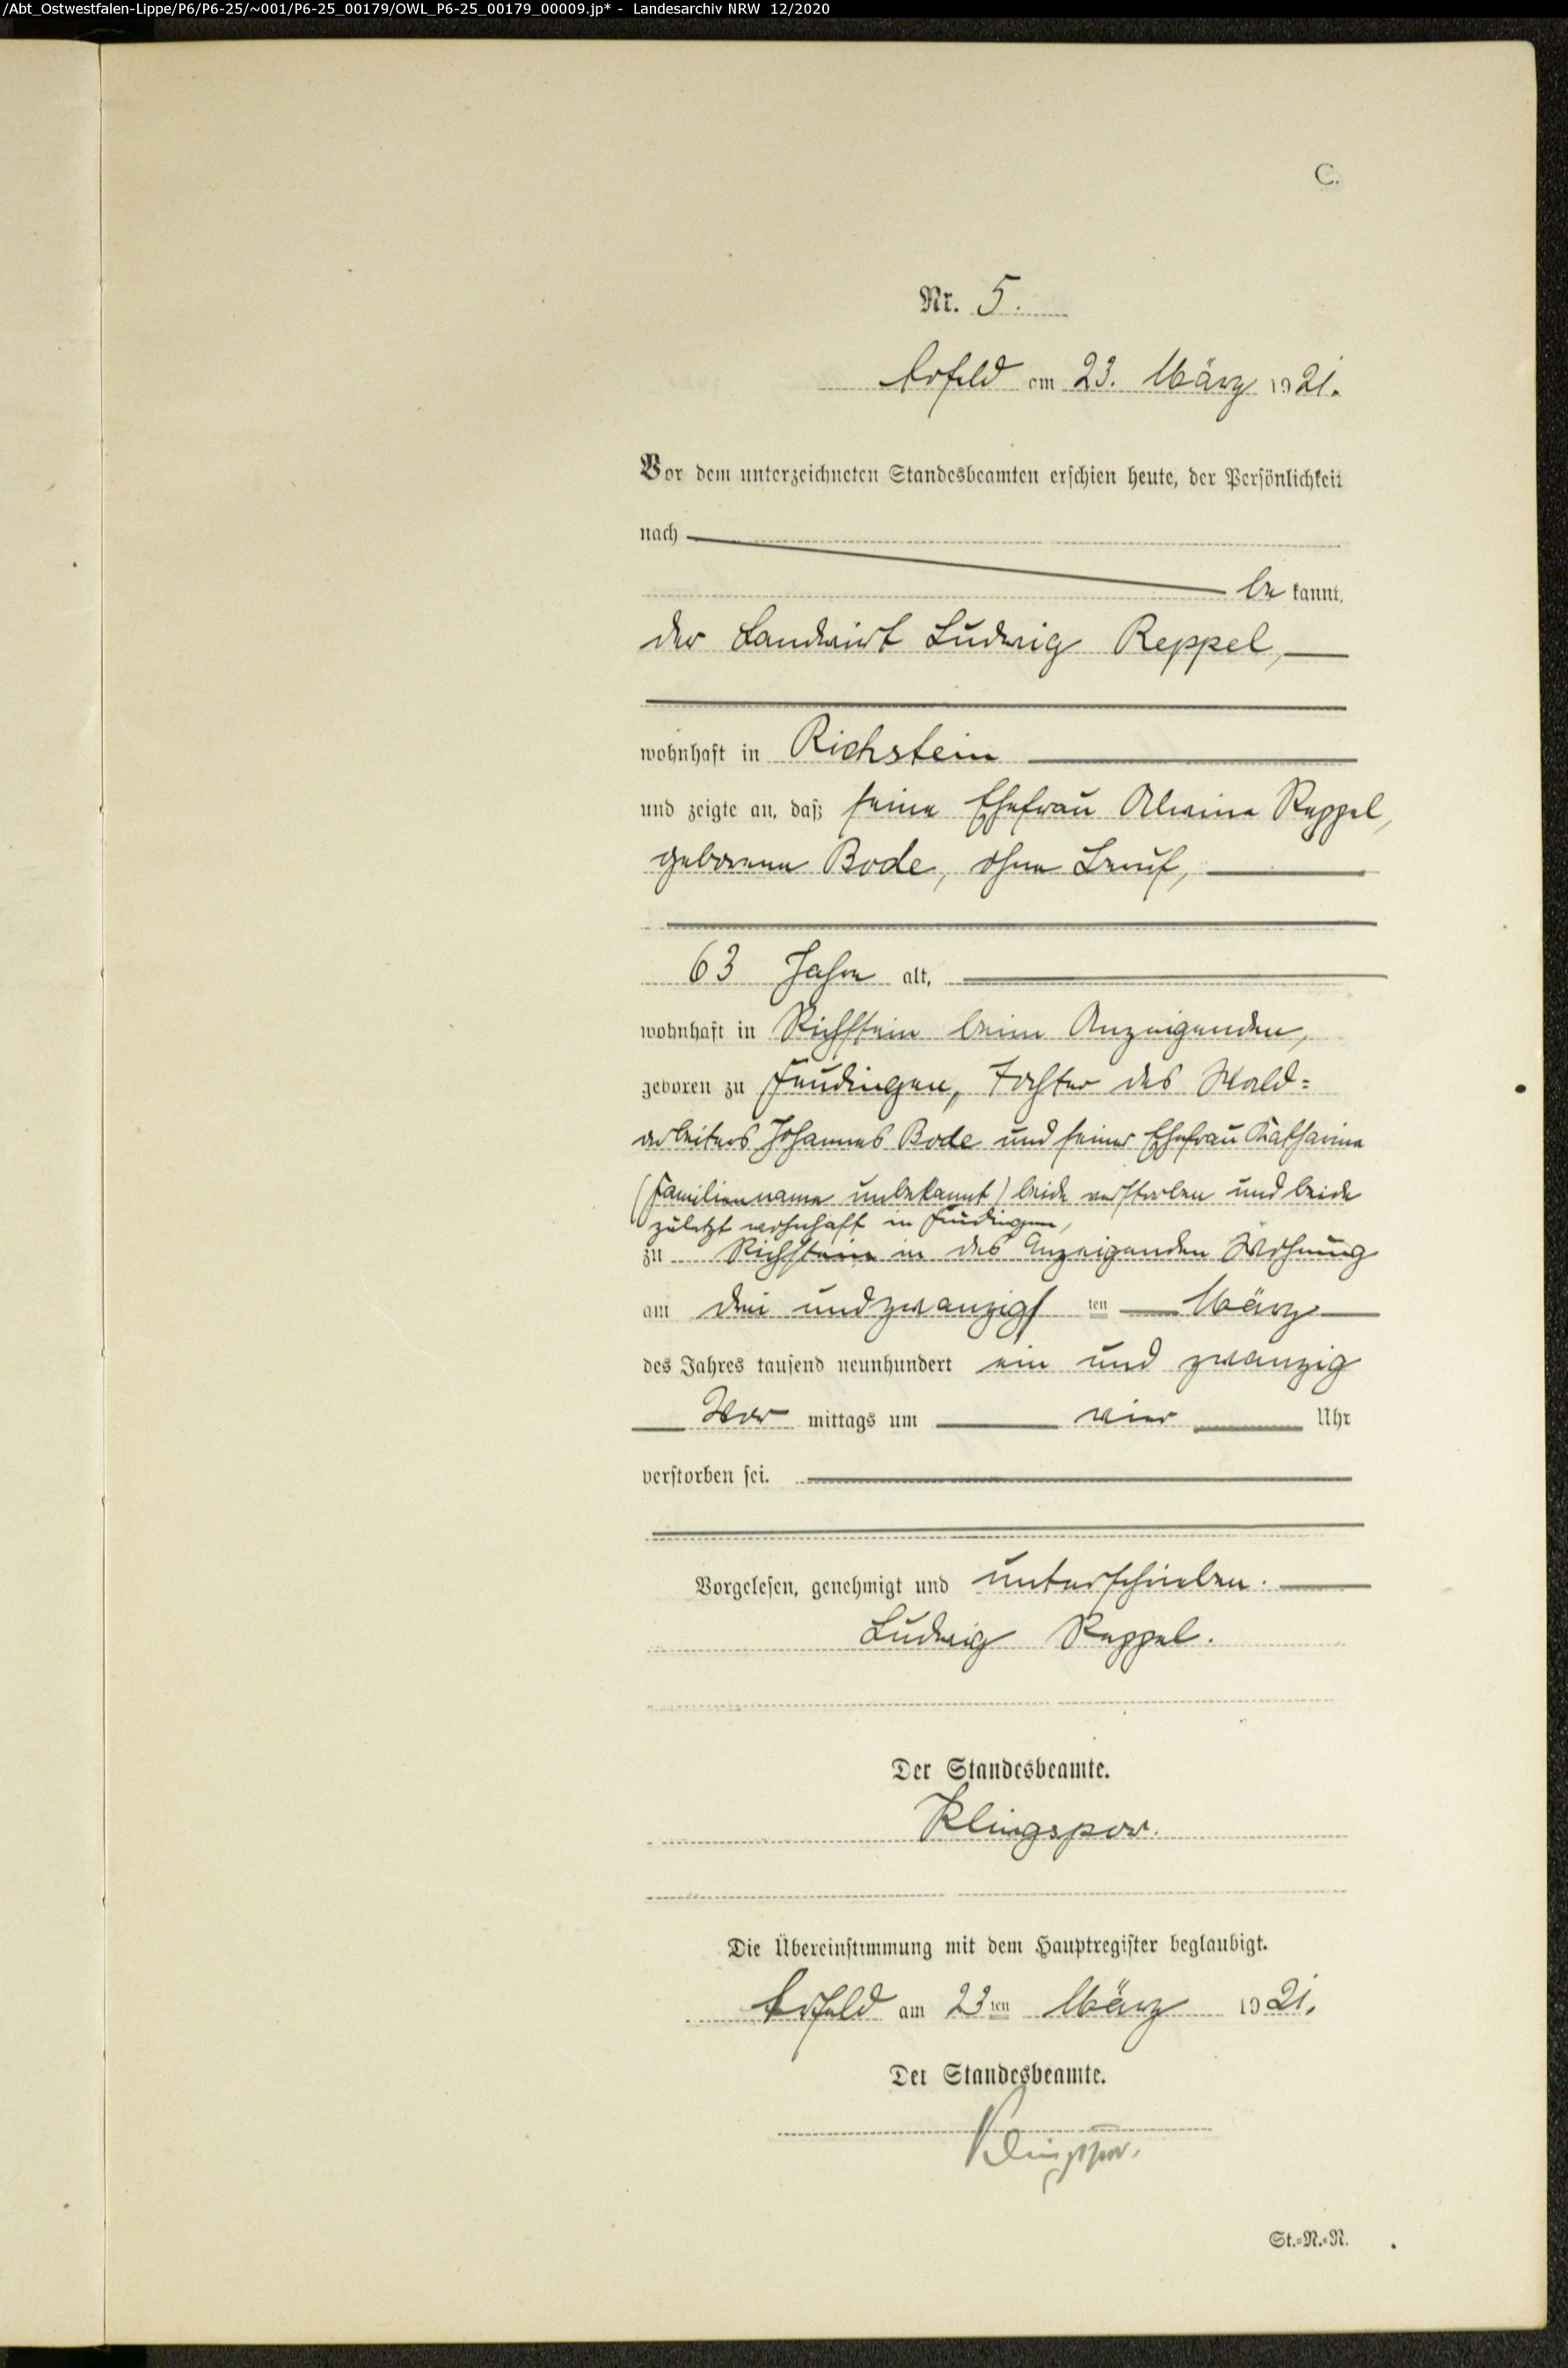 /Abt_Ostwestfalen-Lippe/P6/P6-25/~001/P6-25_00179/OWL_P6-25_00179_00009.jp* - Landesarchiv NRW 12/2020
C.
Nr. 5.
Arfeld am 23. März 1921.
Vor dem unterzeichneten Standesbeamten erschien heute, der Persönlichkeit
nach
be kannt,
der Landwirt Ludwig Reppel,
wohnhaft in Richstein
und zeigte an, daß seine Ehefrau Alwine Reppel,
geborene Bode, ohne Beruf,
63 Jahre alt,
wohnhaft in Richstein beim Anzeigenden,
geboren zu Feudingen, Tochter des Wald=
arbeiters Johannes Bode und seiner Ehefrau Katharine
(Familienname unbekannt) beide verstorben und beide
zuletzt wohnhaft in Feudingen,
zu Richstein in des Anzeigenden Wohnung
am drei und zwanzigs ten März
des Jahres tausend neunhundert ein und zwanzig
Vor mittags um vier Uhr
verstorben sei.
Vorgelesen, genehmigt und unterschrieben.
Ludwig Reppel.
Der Standesbeamte.
Klingspor.
Die Übereinstimmung mit dem Hauptregister beglaubigt.
Arfeld am 23ten März 1921.
Der Standesbeamte.
Klingspor.
St.=N.=R.